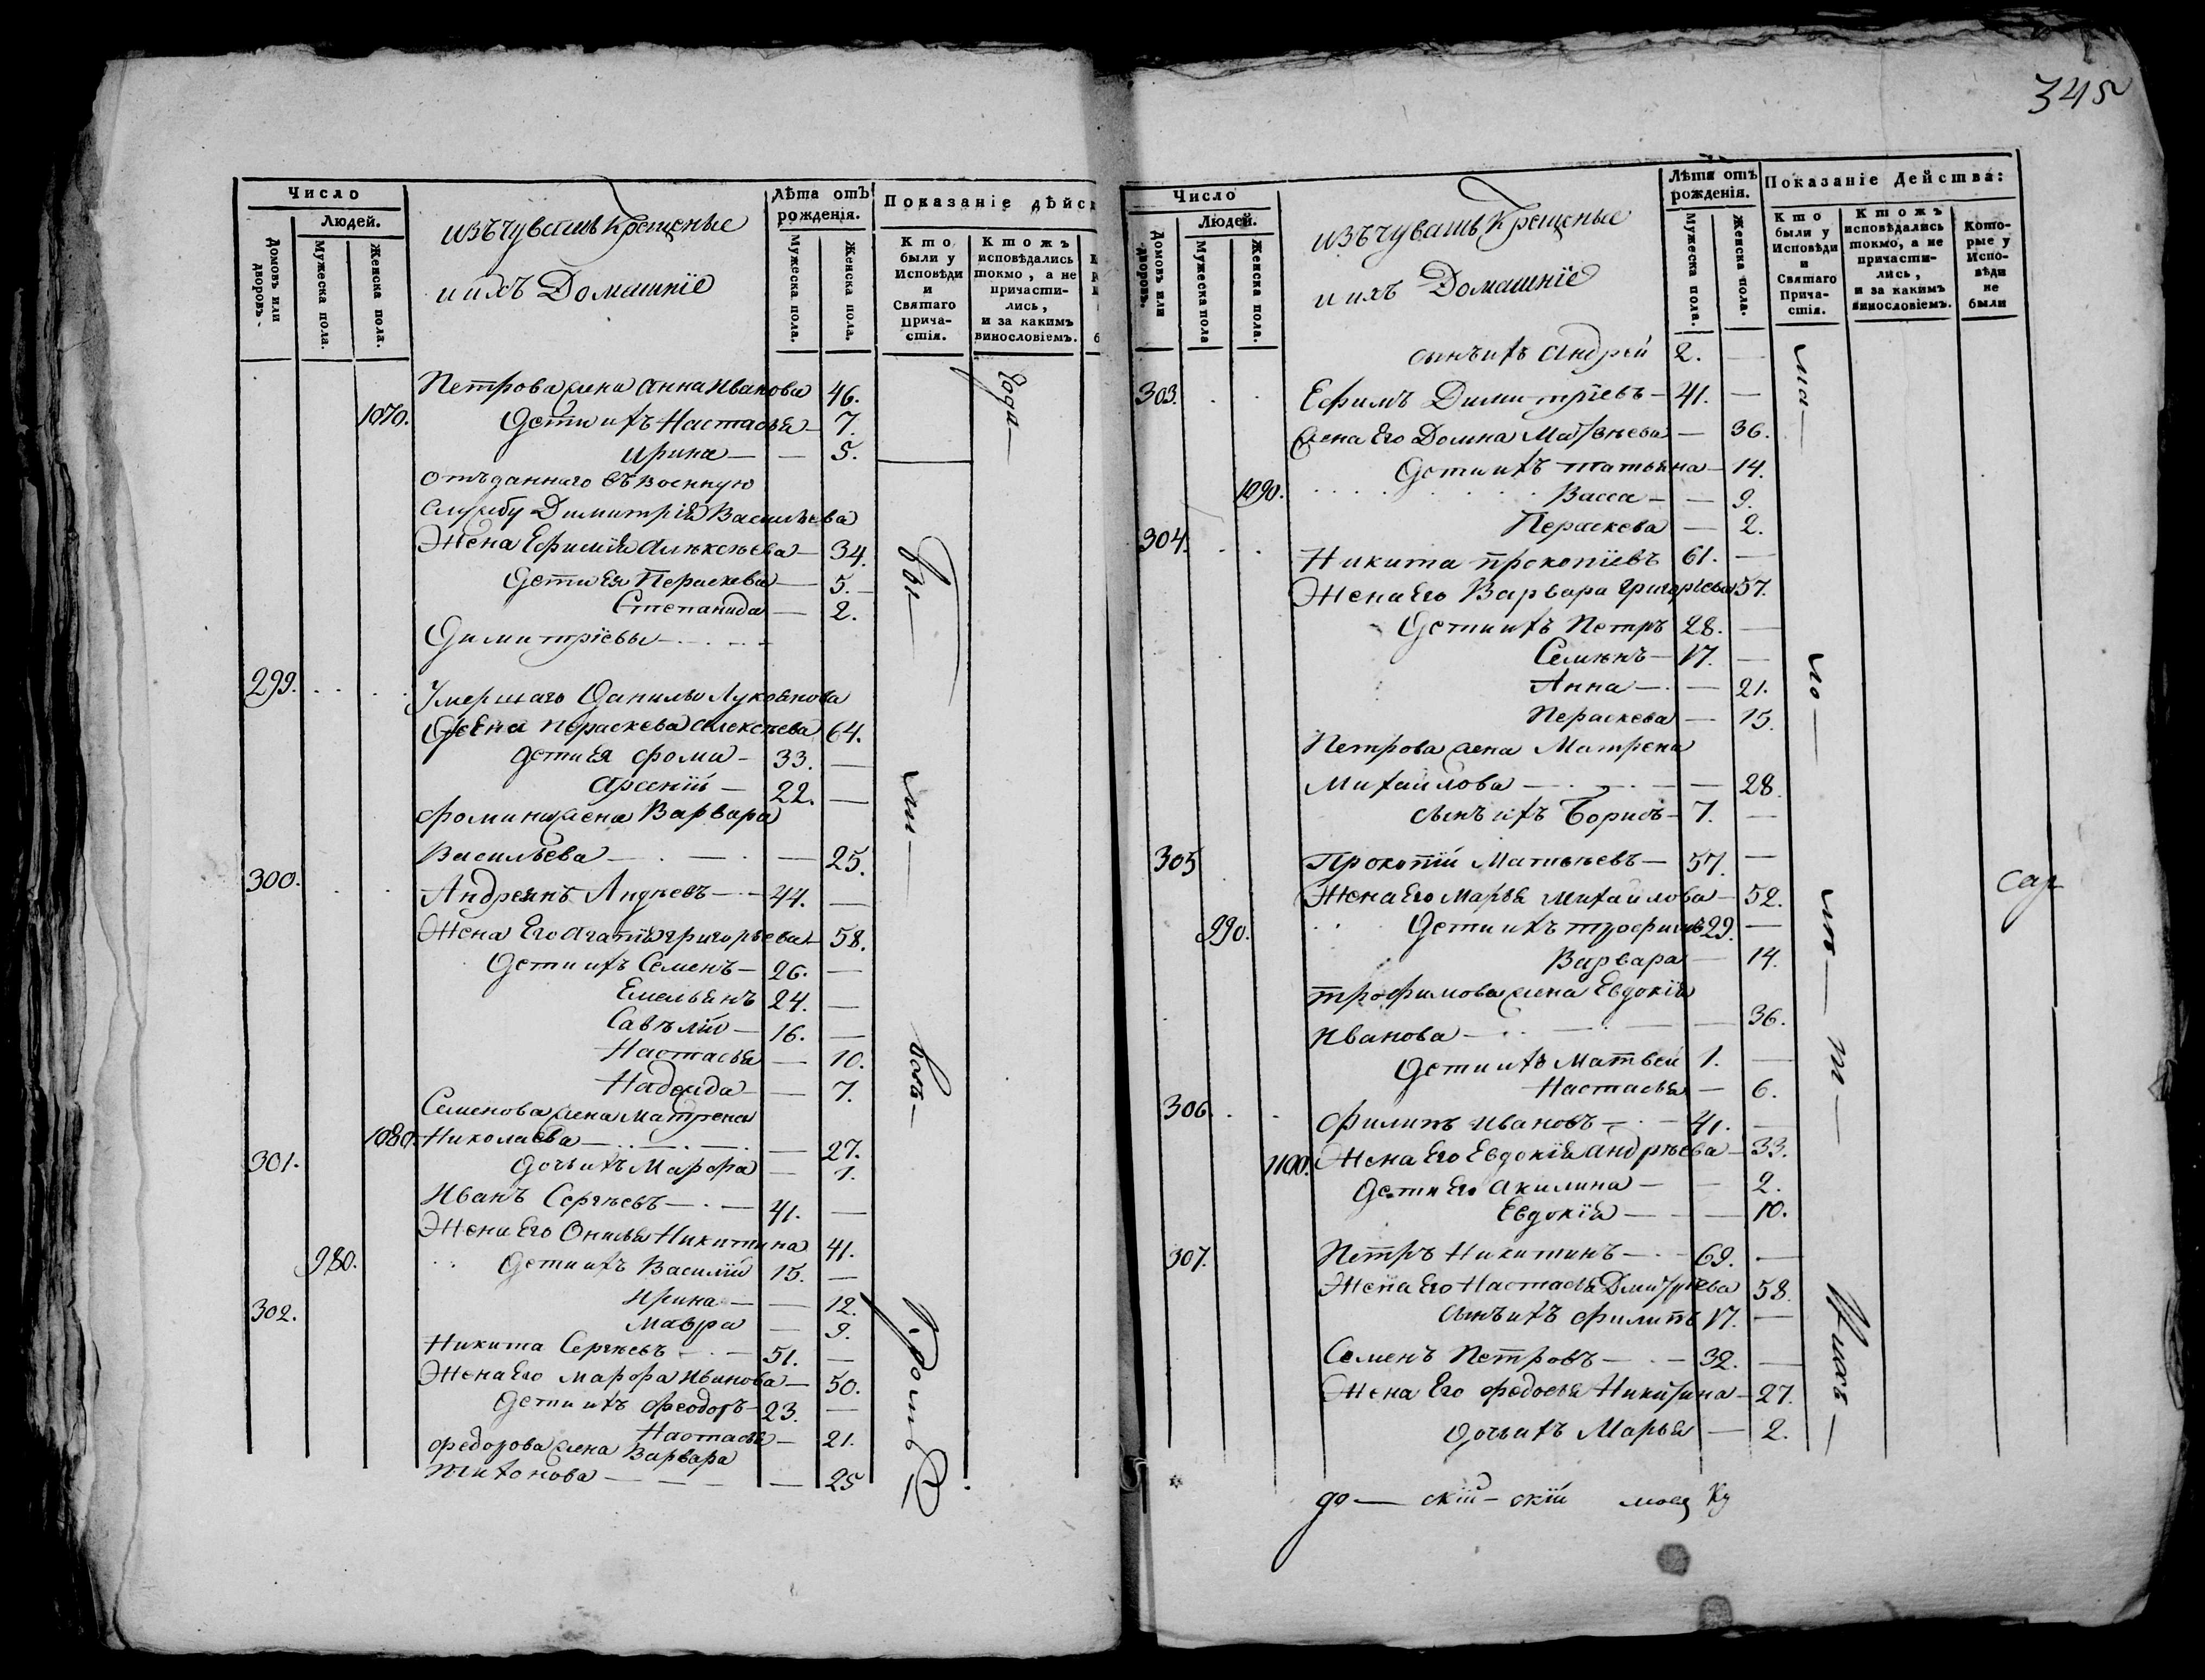 345
Число
Людей.
Домовъ или дворовъ.
Мужеска пола.
Женска пола.
изъ чувашъ крещеные
и ихъ Домашніе
Лѣта отъ рожденія.
Мужеска пола.
Женска пола.
Показаніе дѣйс
Кто были у Исповѣди и Святаго Прича-стія.
Ктожъ исповѣдались токмо, а не причасти-лись, и за какимъ винословіемъ.
Петрова жена Анна Иванова 46.
1070. Дети ихъ Настасья — 7.
Ирина — — 5.
Отъданнаго въ военную
службу Димитрія Васильева
Жена Ефимія Алексѣева — 34.
Дети Ея Пераскева — 5. —
Степанида — 2.
Димитріевы
299. Умершаго Данилы Лукоянова
Жена Пераскева Алексѣева 64.
Дети Ея Фома — 33. —
Арсеній — 22. —
Фомина жена Варвара
Васильева — — 25.
300. Андреянъ Андѣевъ — 44. —
Жена Его Агапія Григорьева — 58.
Дети ихъ Семенъ — 26. —
Емельянъ 24. —
Савѣлій — 16. —
Настасья — 10.
Надежда — 7.
Семенова жена Матрена
1080. Николаева — — 27.
301. Дочь ихъ Марфа — 1.
Иванъ Сергѣевъ — 41. —
Жена Его Онисья Никитина 41.
980. Дети ихъ Василій 15. —
302. Ирина — — 12.
Мавра — 9.
Никита Сергѣевъ — 51. —
Жена Его Марфа Иванова — 50.
Дети ихъ Феодоръ — 23. —
Настасья — 21.
Федорова жена Варвара
Тихонова — — 25
года —
вы —
ши —
Число
Людей.
Домовъ или дворовъ.
Мужеска пола
Женска пола.
изъ чувашъ Крещеные
и ихъ Домашніе
Лѣта отъ рожденія.
Мужеска пола.
Женска пола.
Показаніе Действа:
Кто были у Исповѣди и Святаго Прича-стія.
Ктожъ исповѣдались токмо, а не причасти-лись, и за какимъ винословіемъ.
Кото-рые у Испо-вѣди не были
сынъ ихъ Андрей 2. —
303. Ефимъ Димитріевъ — 41. —
жена Его Домна Матвѣева — 36.
Дети ихъ Татьяна — 14.
1090. Васса — — 9.
Пераскева — 2.
304. Никита Прокопіевъ 61. —
Жена Его Варвара Григорьева 57.
Дети ихъ Петръ 28. —
Семѣнъ — 17. —
Анна — — 21.
Пераскева — 15.
Петрова жена Матрена
Михаилова — — 28.
сынъ ихъ Борисъ — 7. —
305 Прокопій Матвѣевъ — 57. —
Жена Его Марья Михаилова — 52.
990. Дети ихъ Трофимъ 29. —
Варвара — 14.
Трофимова жена Евдокія
Иванова — — 36.
Дети ихъ Матвей 1. —
Настасья — 6.
306. Филипъ Ивановъ — 41. —
1100. Жена Его Евдокія Андрѣева — 33.
Дети Его Акилина — — 2.
Евдокія — — 10.
307. Петръ Никитинъ — 69. —
Жена Его Настасья Дмитріева 58.
сынъ ихъ Филипъ 17. —
Семенъ Петровъ — 32. —
Жена Его Федосья Никитина — 27.
дочь ихъ Марья — 2.
на —
но —
т —
сар
до — скій — скій